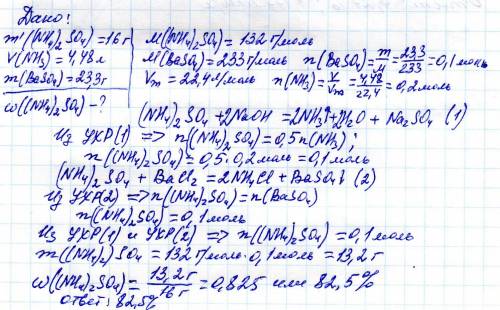 Дано:
m'((NH₄)₂SO₄)=16г M((NH₄)₂SO₄)=132 г/моль
V(NH₃)=4,48л M(BaSO₄)=233 г/моль n(BaSO₄)=m/M=23,3/233=0,1моль
m(BaSO₄)=23,3г Vm=22,4л/моль n(NH₃)=V/Vm=4,48/22,4=0,2моль
ω((NH₄)₂SO₄)-?
(NH₄)₂SO₄+2NaOH=2NH₃↑+2H₂O+Na₂SO₄ (1)
Из УХР(1) => n((NH₄)₂SO₄)=0,5n(NH₃);
n((NH₄)₂SO₄)=0,5·0,2моль=0,1моль
(NH₄)₂SO₄+BaCl₂=2NH₄Cl+BaSO₄↓ (2)
Из УХР(2)=>n((NH₄)₂SO₄)=n(BaSO₄)
n((NH₄)₂SO₄)=0,1моль
Из УХР(1) и УХР(2) => n((NH₄)₂SO₄)=0,1моль
m((NH₄)₂)SO₄=132г/моль·0,1моль=13,2г
ω((NH₄)₂SO₄)=13,2г/16г=0,825 или 82,5%
ответ: 82,5%